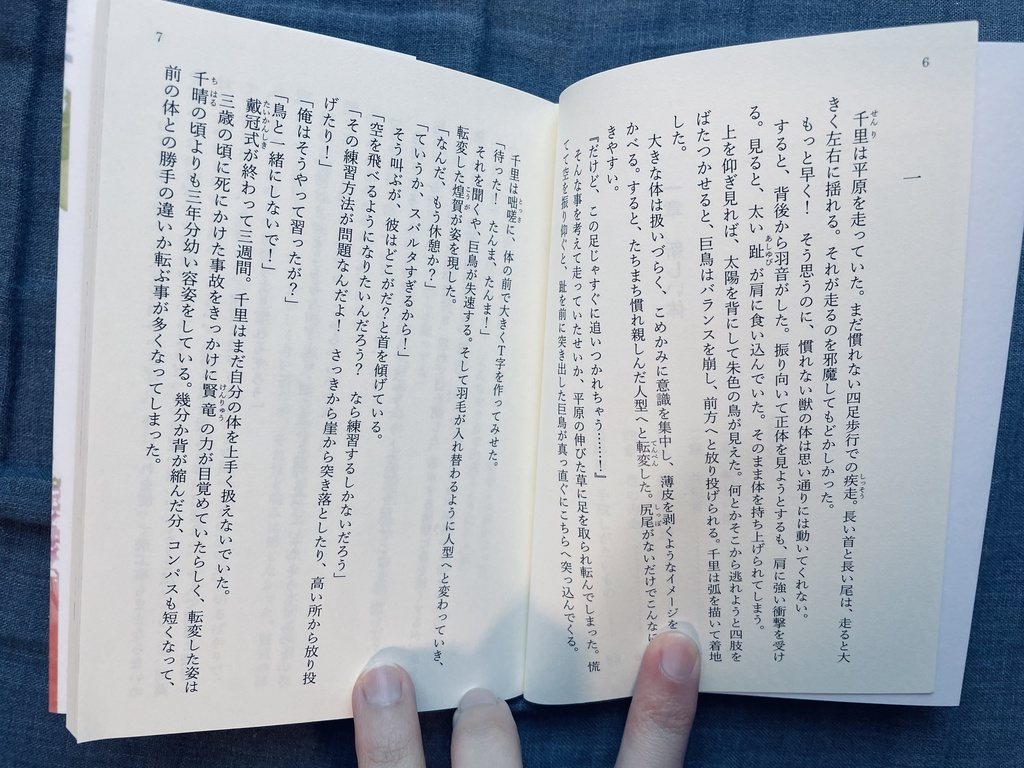 6
一
千里は平原を走っていた。まだ慣れない四足歩行での疾走。長い首と長い尾は、走ると大
きく左右に揺れる。それが走るのを邪魔してもどかしかった。
もっと早く！　そう思うのに、慣れない獣の体は思い通りには動いてくれない。
すると、背後から羽音がした。振り向いて正体を見ようとするも、肩に強い衝撃を受け
る。見ると、太い趾が肩に食い込んでいた。そのまま体を持ち上げられてしまう。
上を仰ぎ見れば、太陽を背にして朱色の鳥が見えた。何とかそこから逃れようと四肢を
ばたつかせると、巨鳥はバランスを崩し、前方へと放り投げられる。千里は弧を描いて着地
した。
大きな体は扱いづらく、こめかみに意識を集中し、薄皮を剥くようなイメージを
かべる。すると、たちまち慣れ親しんだ人型へと転変した。尻尾がないだけでこんなに
きやすい。
『だけど、この足じゃすぐに追いつかれちゃう……！』
そんな事を考えて走っていたせいか、平原の伸びた草に足を取られ転んでしまった。慌
てて空を振り仰ぐと、趾を前に突き出した巨鳥が真っ直ぐにこちらへ突っ込んでくる。
7
千里は咄嗟に、体の前で大きくT字を作ってみせた。
「待った！　たんま、たんま！」
それを聞くや、巨鳥が失速する。そして羽毛が入れ替わるように人型へと変わっていき、
転変した煌賀が姿を現した。
「なんだ、もう休憩か？」
「ていうか、スパルタすぎるから！」
そう叫ぶが、彼はどこがだ？と首を傾げている。
「空を飛べるようになりたいんだろう？　なら練習するしかないだろう」
「その練習方法が問題なんだよ！　さっきから崖から突き落としたり、高い所から放り投
げたり！」
「俺はそうやって習ったが？」
「鳥と一緒にしないで！」
戴冠式が終わって三週間。千里はまだ自分の体を上手く扱えないでいた。
三歳の頃に死にかけた事故をきっかけに賢竜の力が目覚めていたらしく、転変した姿は
千晴の頃よりも三年分幼い容姿をしている。幾分か背が縮んだ分、コンパスも短くなって、
前の体との勝手の違いか転ぶ事が多くなってしまった。